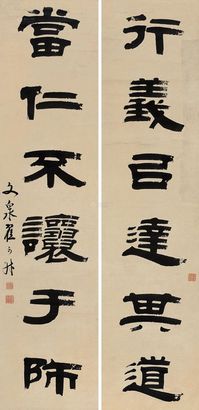 行義㠯達其道
當仁不讓于師
文泉翟云升